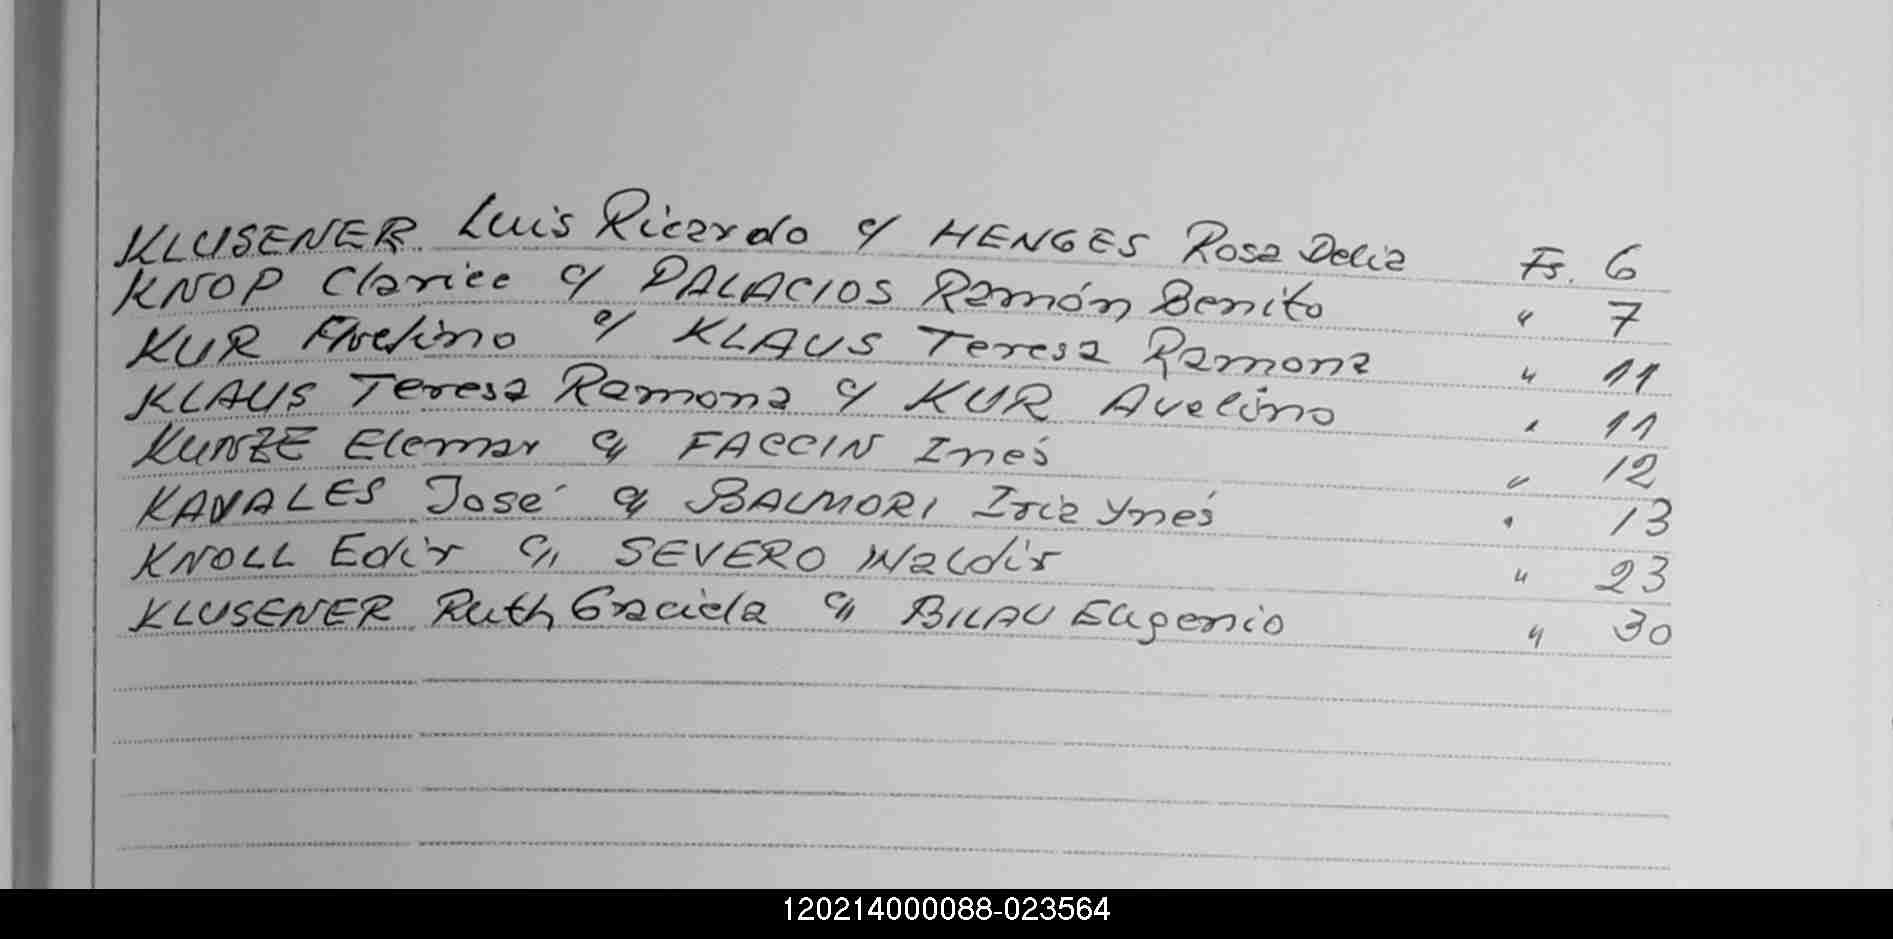 KLUSENER Luis Ricardo c/ HENGES Rosa Delia Fs. 6
KNOP Clarice c/ PALACIOS Ramón Benito " 7
KUR Avelino c/ KLAUS Teresa Ramona " 11
KLAUS Teresa Ramona c/ KUR Avelino " 11
KUNZE Elemar c/ FACCIN Inés " 12
KANALES José c/ BALMORI Iria Ynés " 13
KNOLL Edir c/ SEVERO Waldir " 23
KLUSENER Ruth Graciela c/ BILAU Eugenio " 30
120214000088-023564